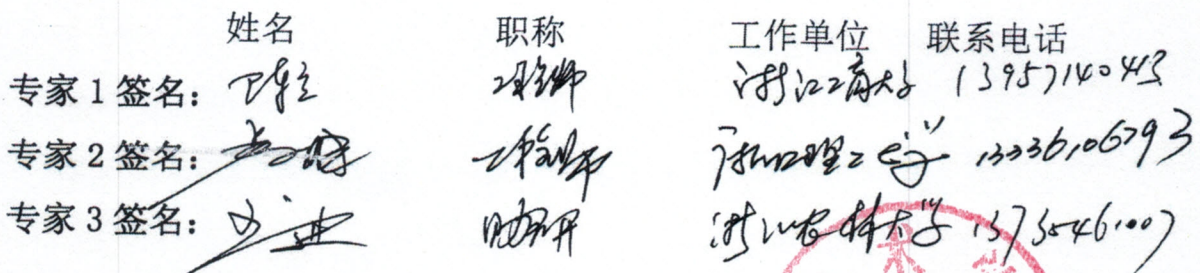 姓名 职称 工作单位 联系电话
专家1签名: 工程师 浙江工商大学 13957140413
专家2签名: 工程师 浙江理工大学 13336106793
专家3签名: 助研 浙江农林大学 13735461007